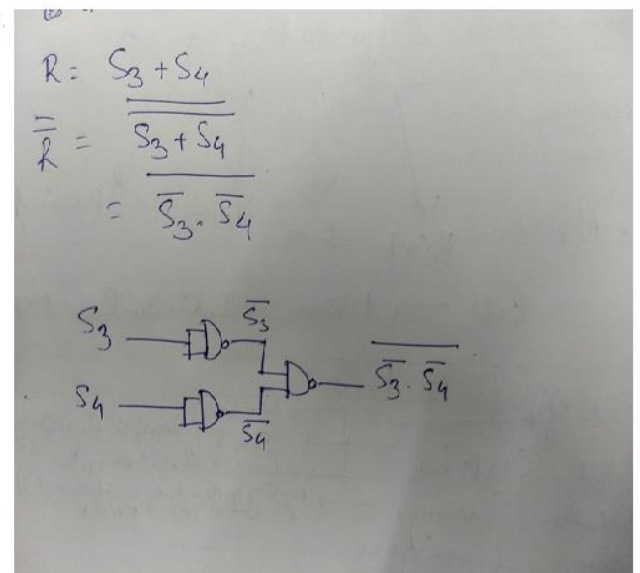 R = S₃ + S₄
R̿ = \overline{\overline{S₃ + S₄}}
= \overline{S̅₃ . S̅₄}
S₃
S̅₃
\overline{S̅₃ . S̅₄}
S₄
S̅₄